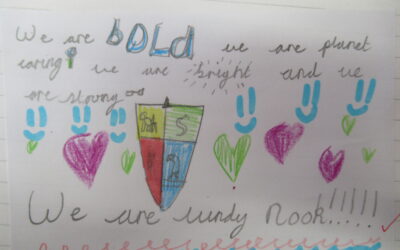 We are bOLd we are planet
caring we are bright and we
are strong
S
We are windy nook!!!!!.....